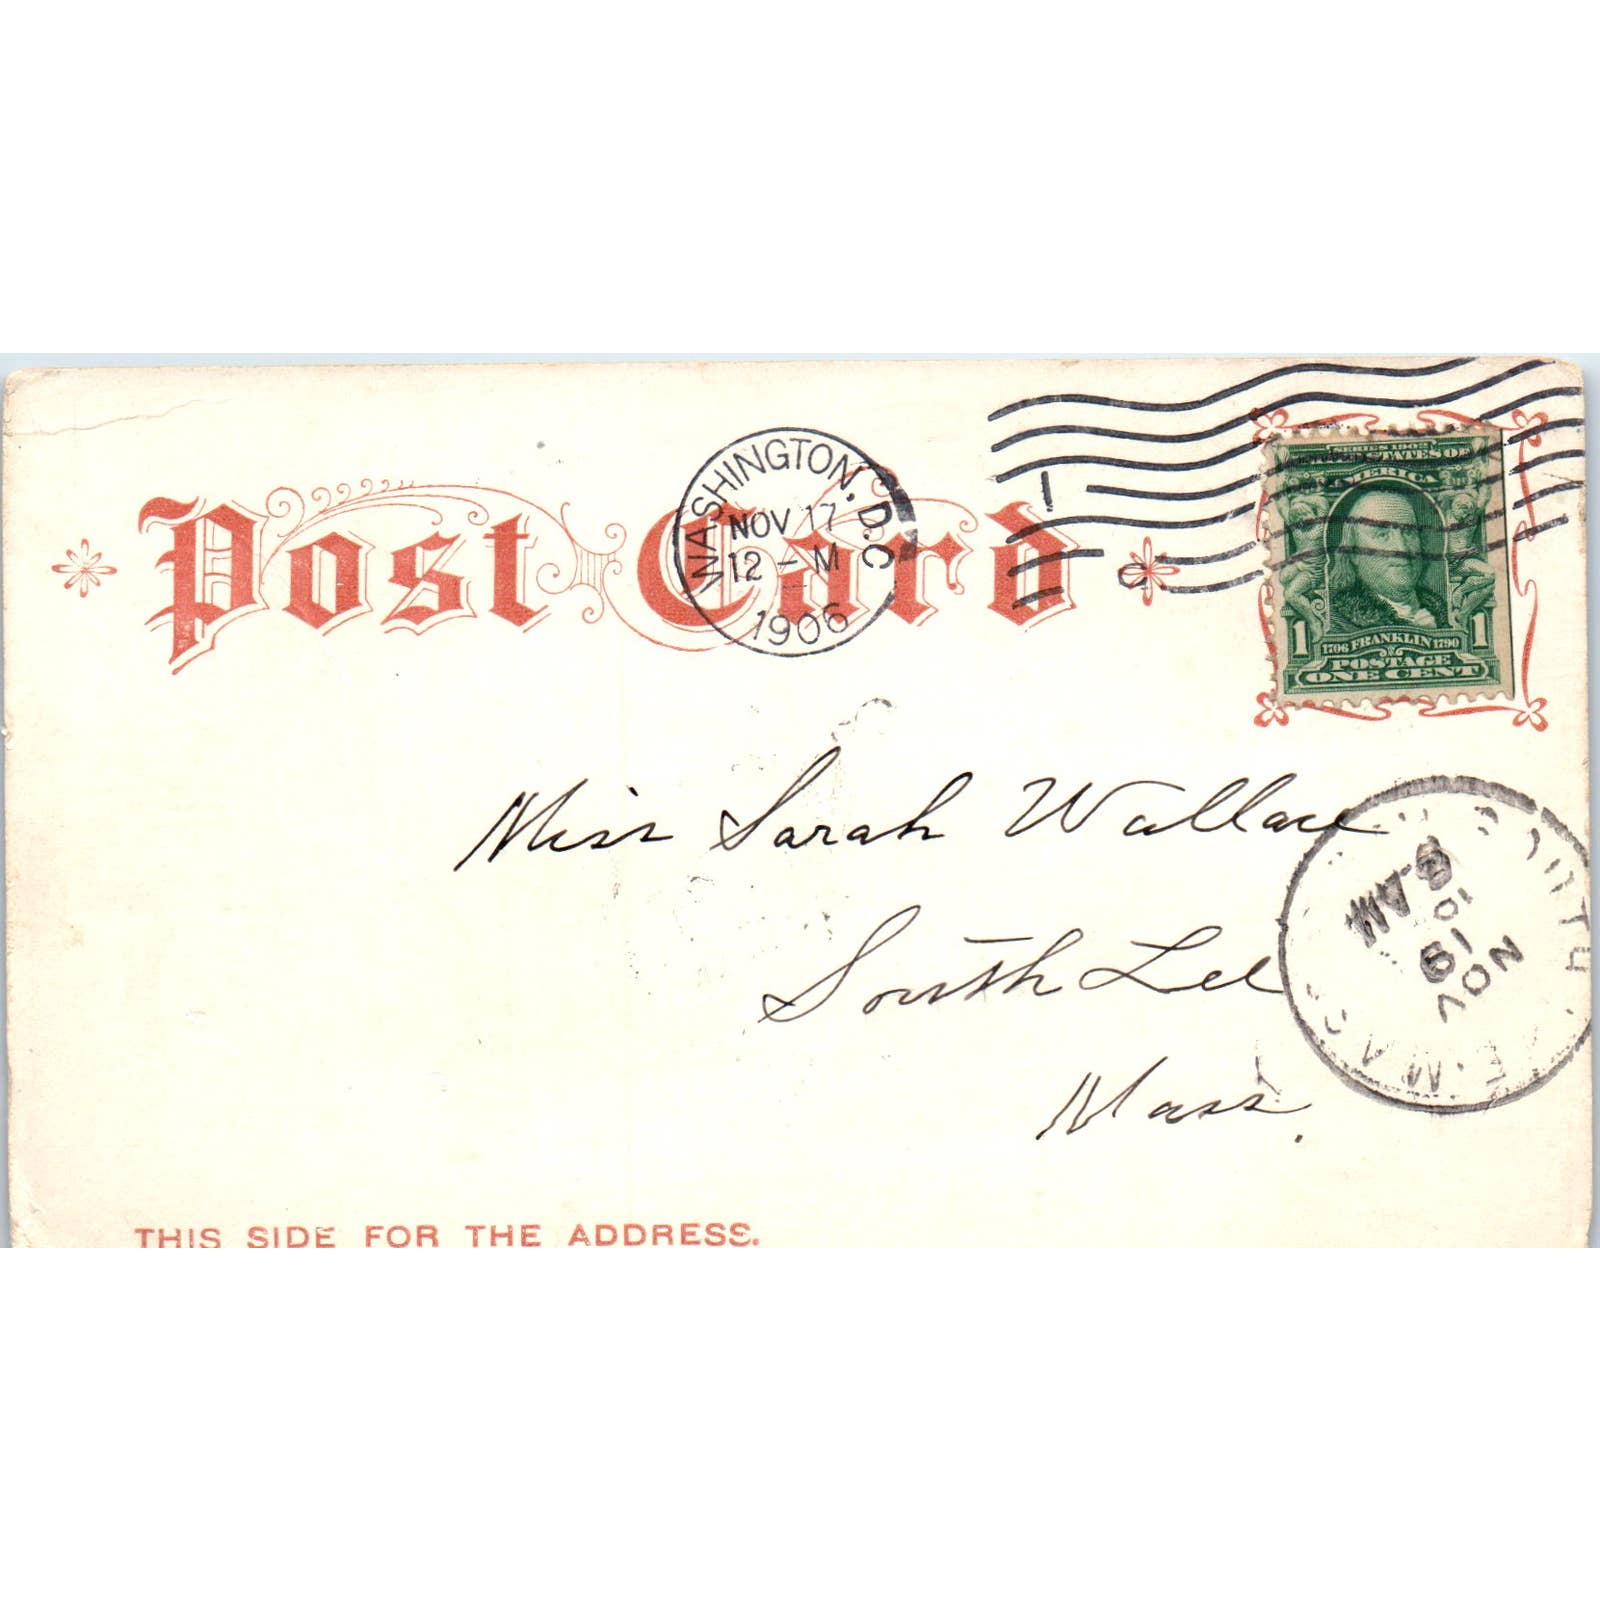 Post Card
WASHINGTON, D.C.
NOV 17
12 - M
1906
1
SERIES 1902
UNITED STATES OF
AMERICA
1 1706 FRANKLIN 1790 1
POSTAGE
ONE CENT
Miss Sarah Wallace
South Lee
Mass.
NOV
19
8-AM
MASS
THIS SIDE FOR THE ADDRESS.